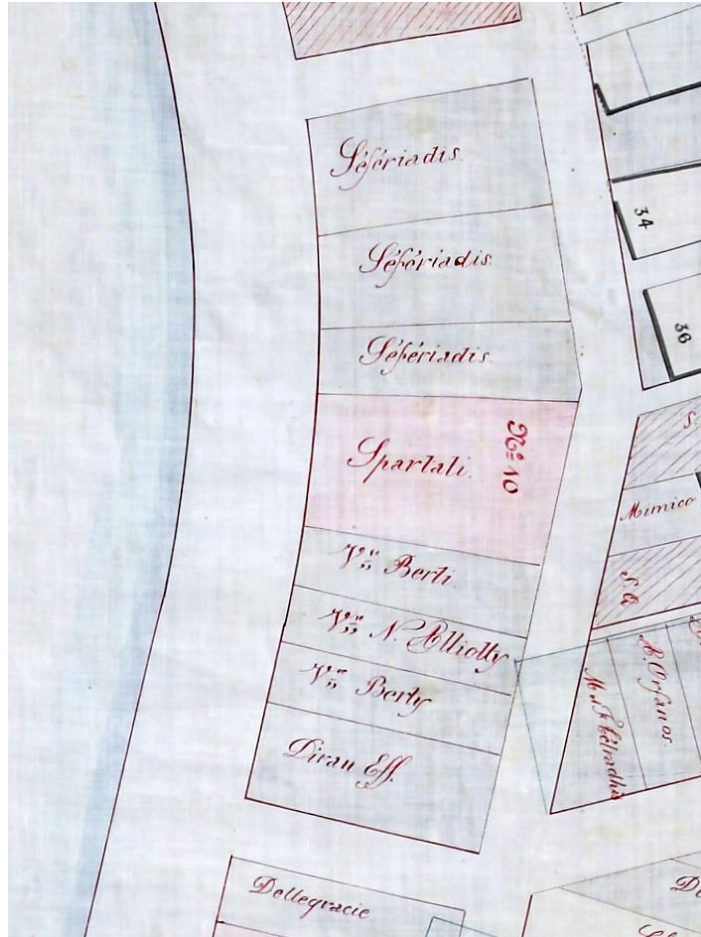 Séfériadis.
Séfériadis.
Séfériadis
Spartali.
No 10
Vve Berti.
Vve N. Alliotty
Vve Berty
Diran Eff.
Dellegracie
34
36
S.
Mimico
S. A
A. Orfanos